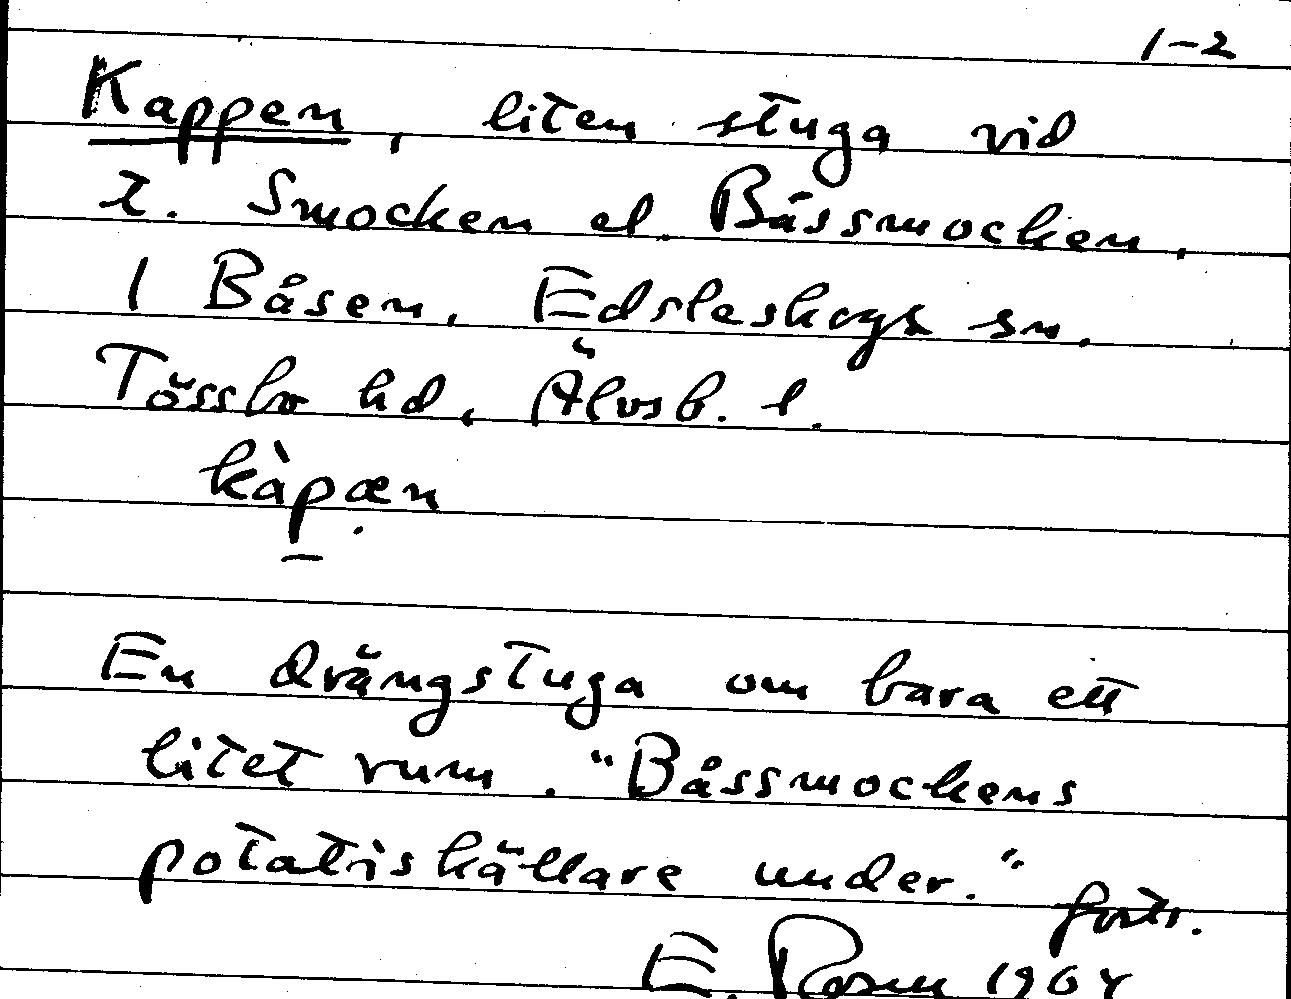 1-2
Kappen, liten stuga vid
t. Smocken el. Båssmocken,
1 Båsen, Edsleskogs sn.
Tössbo hd, Älvsb. l.
kàpæn
En drängstuga om bara ett
litet rum. "Båssmockens
potatiskällare under." forts.
E. Rosén 1964